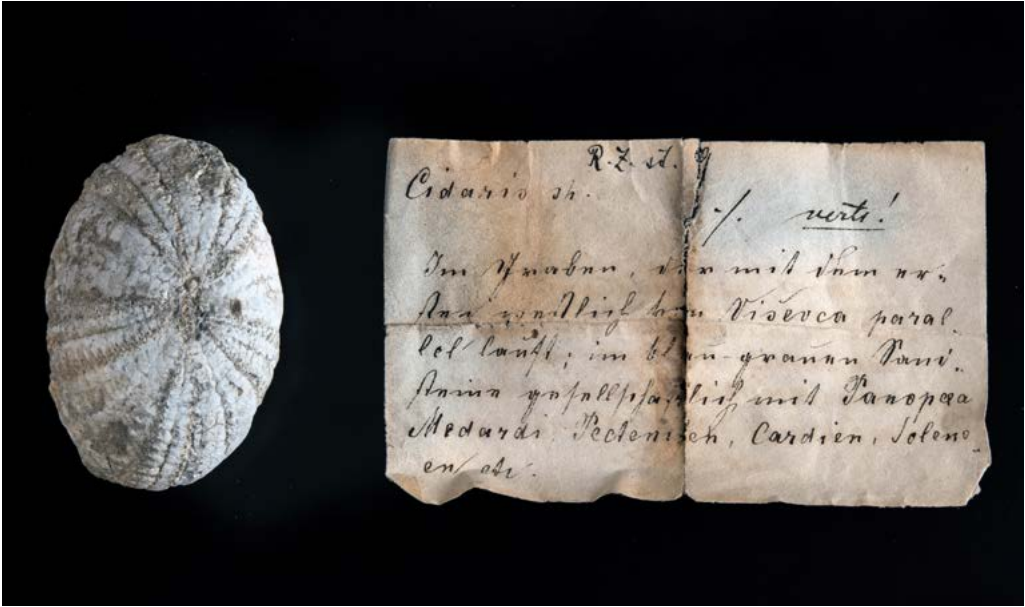 R. Z. st. 9
Cidaris sp.
·/. verte!
Im Graben, der mit dem er-
sten westlich von Viševca paral-
lel lauft; im blau-grauen Sand-
steine gesellschaftlich mit Panopæa
Medardi, Pecteniten, Cardien, Solene
en etc.